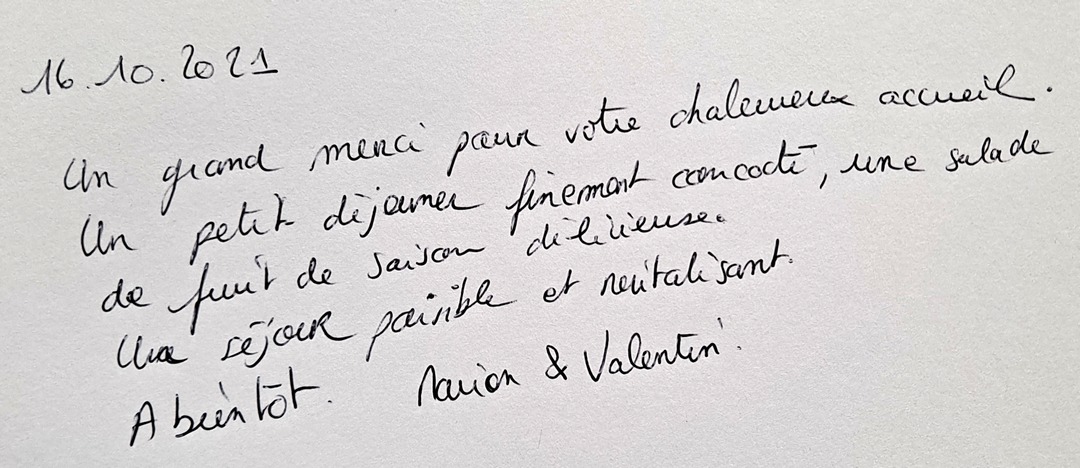 16.10.2021
Un grand merci pour votre chaleureux accueil.
Un petit déjeuner finement concocté, une salade
de fruit de saison délicieuse.
Un séjour paisible et revitalisant.
A bientôt. Marion & Valentin.